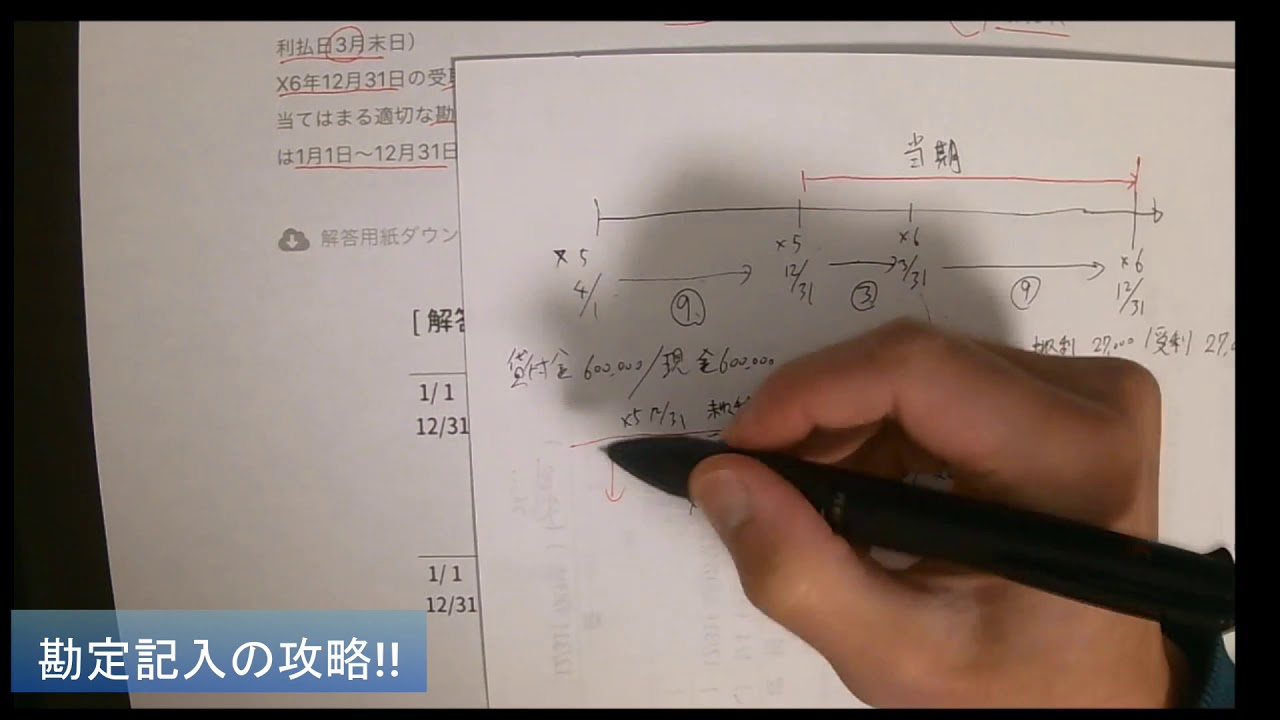 利払日3月末日）
X6年12月31日の受
当てはまる適切な勘
は1月1日～12月31日
解答用紙ダウン
[ 解答
1/ 1
12/31
1/ 1
12/31
当期
×5 4/1
×5 12/31
×6 3/31
×6 12/31
⑨
③
⑨
貸付金 600,000/現金600,000
未収利 27,000/受利 27,0
×5 12/31 未収利
勘定記入の攻略!!